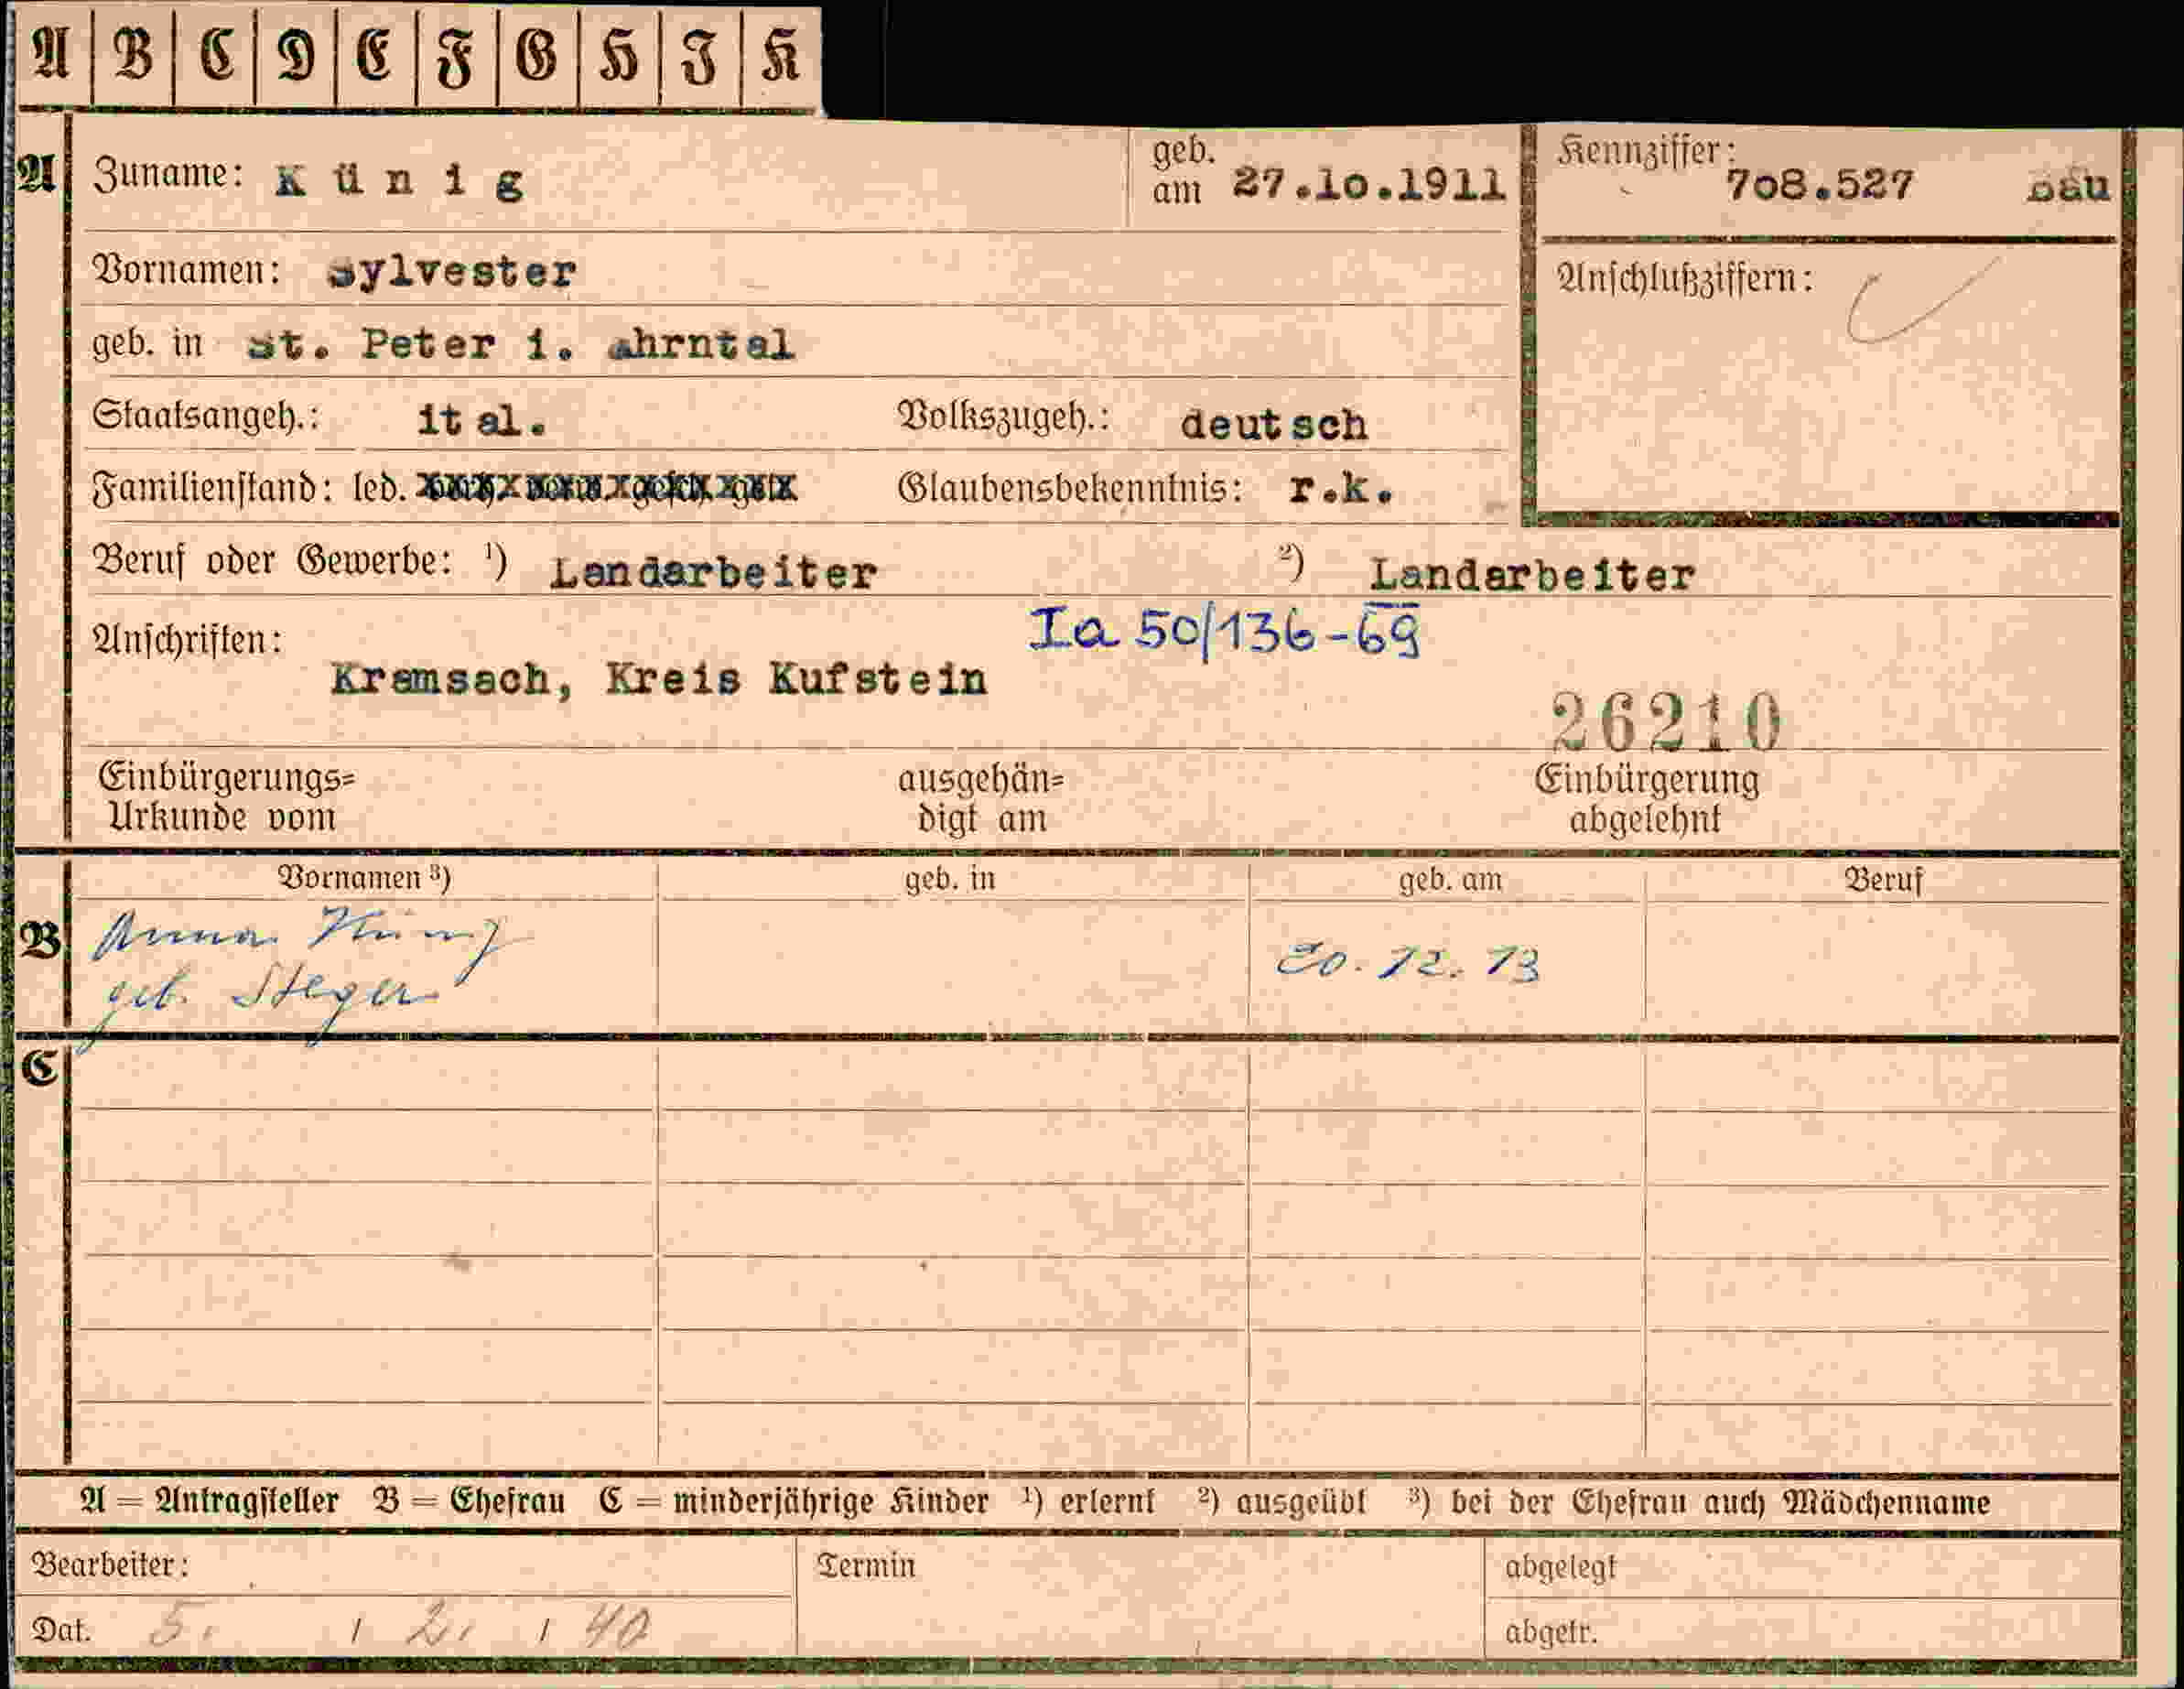 A B C D E F G H I K
A Zuname: Künig geb. am 27.10.1911 Kennziffer: 708.527
Vornamen: Sylvester Anschlußziffern:
geb. in St. Peter i. Ahrntal
Staatsangeh.: ital. Volkszugeh.: deutsch
Familienstand: led. Glaubensbekenntnis: r.k.
Beruf oder Gewerbe: ¹) Landarbeiter ²) Landarbeiter
Anschriften: Ia 50/136-69
Kramsach, Kreis Kufstein
26210
Einbürgerungs= ausgehän= Einbürgerung
Urkunde vom digt am abgelehnt
Vornamen ³) geb. in geb. am Beruf
B Anna Künig 20.12.13
geb. Steger
C
A = Antragsteller B = Ehefrau C = minderjährige Kinder ¹) erlernt ²) ausgeübt ³) bei der Ehefrau auch Mädchenname
Bearbeiter: Termin abgelegt
Dat. 5. / 2. / 40 abgetr.